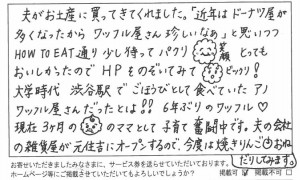 夫がお土産に買ってきてくれました。「近年はドーナツ屋が
多くなったから ワッフル屋さん 珍しいなぁ」と思いつつ
HOW TO EAT 通り 少し待って パクリ 笑顔 とっても
おいしかったので HP をのぞいてみて ビックリ!
大学時代 渋谷駅で ごほうびとして食べていた アノ
ワッフル屋さんだったとは!! 6年ぶりのワッフル♡
現在 3ヶ月の のママとして 子育て 奮闘中です。夫の会社
の雑貨屋が元住吉にオープンするので、今度は焼きりんごをおね
だりしてみます。
お寄せいただきましたみなさまに、サービス券を送らせていただいております。
ホームページ等にご掲載させていただいてもよろしいでしょうか? 掲載可 掲載不可